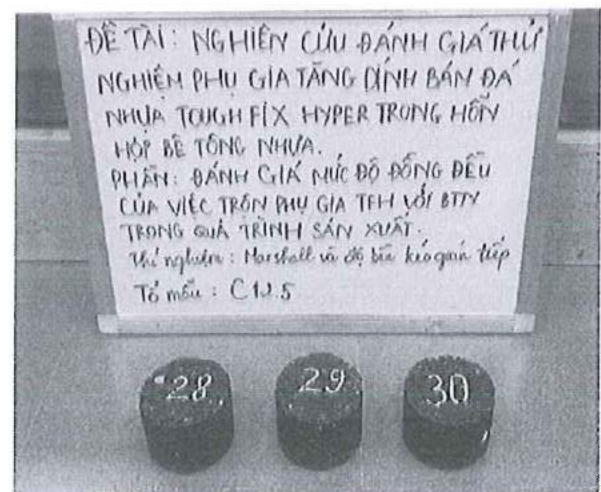 ĐỀ TÀI: NGHIÊN CỨU ĐÁNH GIÁ THỬ
NGHIỆM PHỤ GIA TĂNG DÍNH BÁM ĐÁ
NHỰA TOUGH FIX HYPER TRONG HỖN
HỢP BÊ TÔNG NHỰA.
PHẦN: ĐÁNH GIÁ MỨC ĐỘ ĐỒNG ĐỀU
CỦA VIỆC TRỘN PHỤ GIA TFH VỚI BTN
TRONG QUÁ TRÌNH SẢN XUẤT.
Thí nghiệm: Marshall và độ bền kéo gián tiếp
Tổ mẫu: C12.5
28 29 30